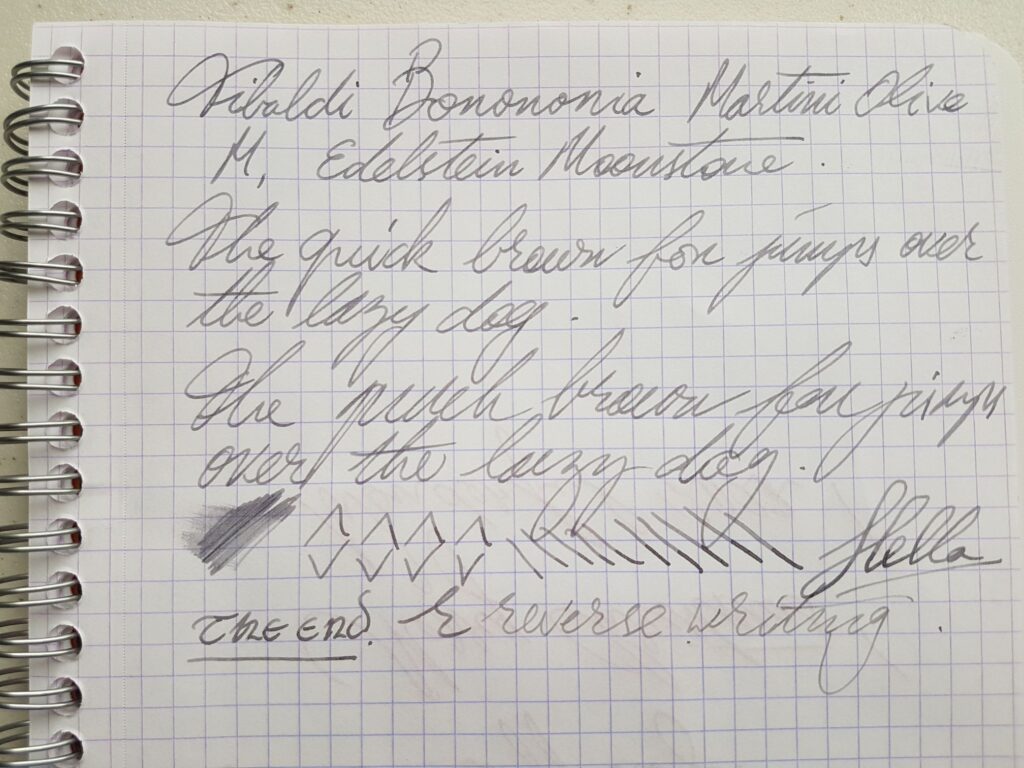 Vibaldi Bonononia Martini Olive
M, Edelstein Moonstone.
The quick brown fox jumps over
the lazy dog.
The quick brown fox jumps
over the lazy dog.
Hello
THE END. & reverse writing.